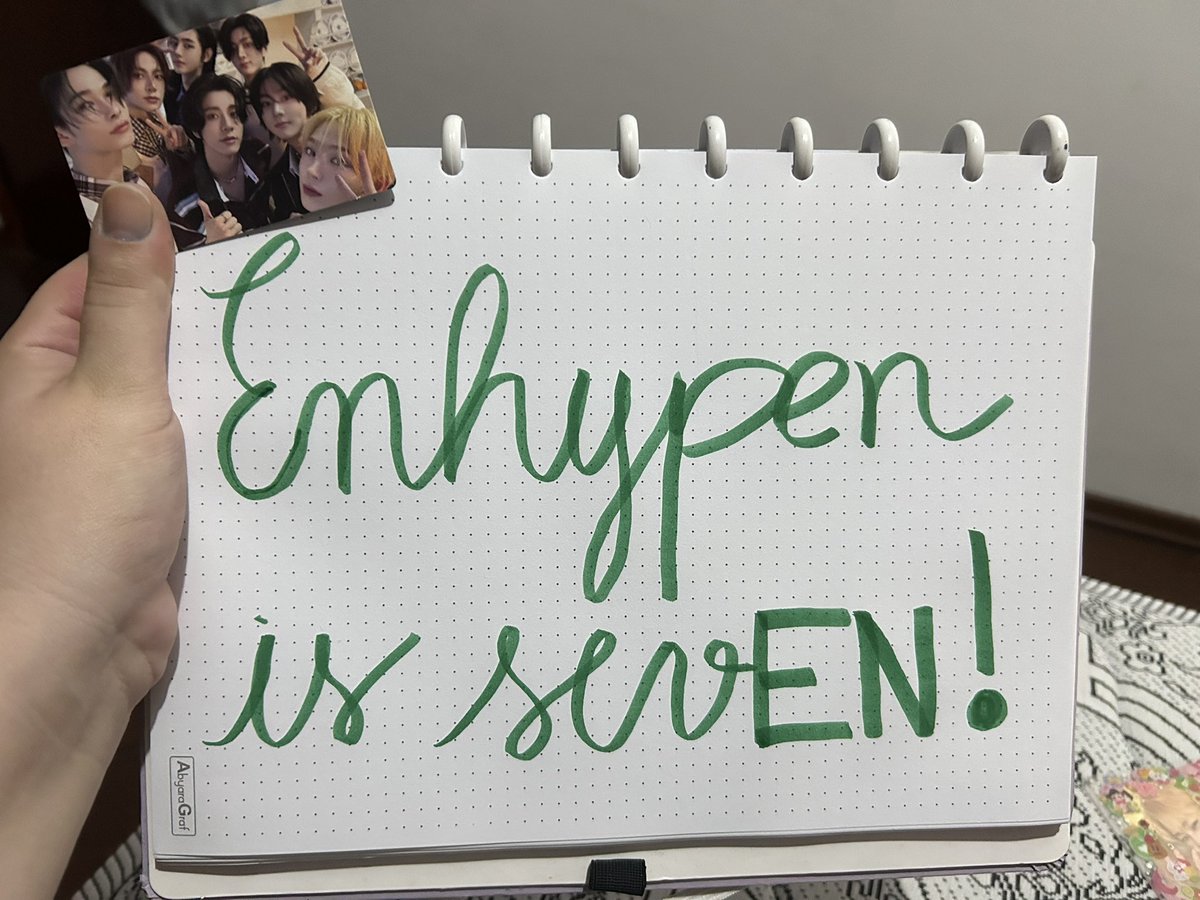 Enhypen
is sevEN!
AbyaraGraf